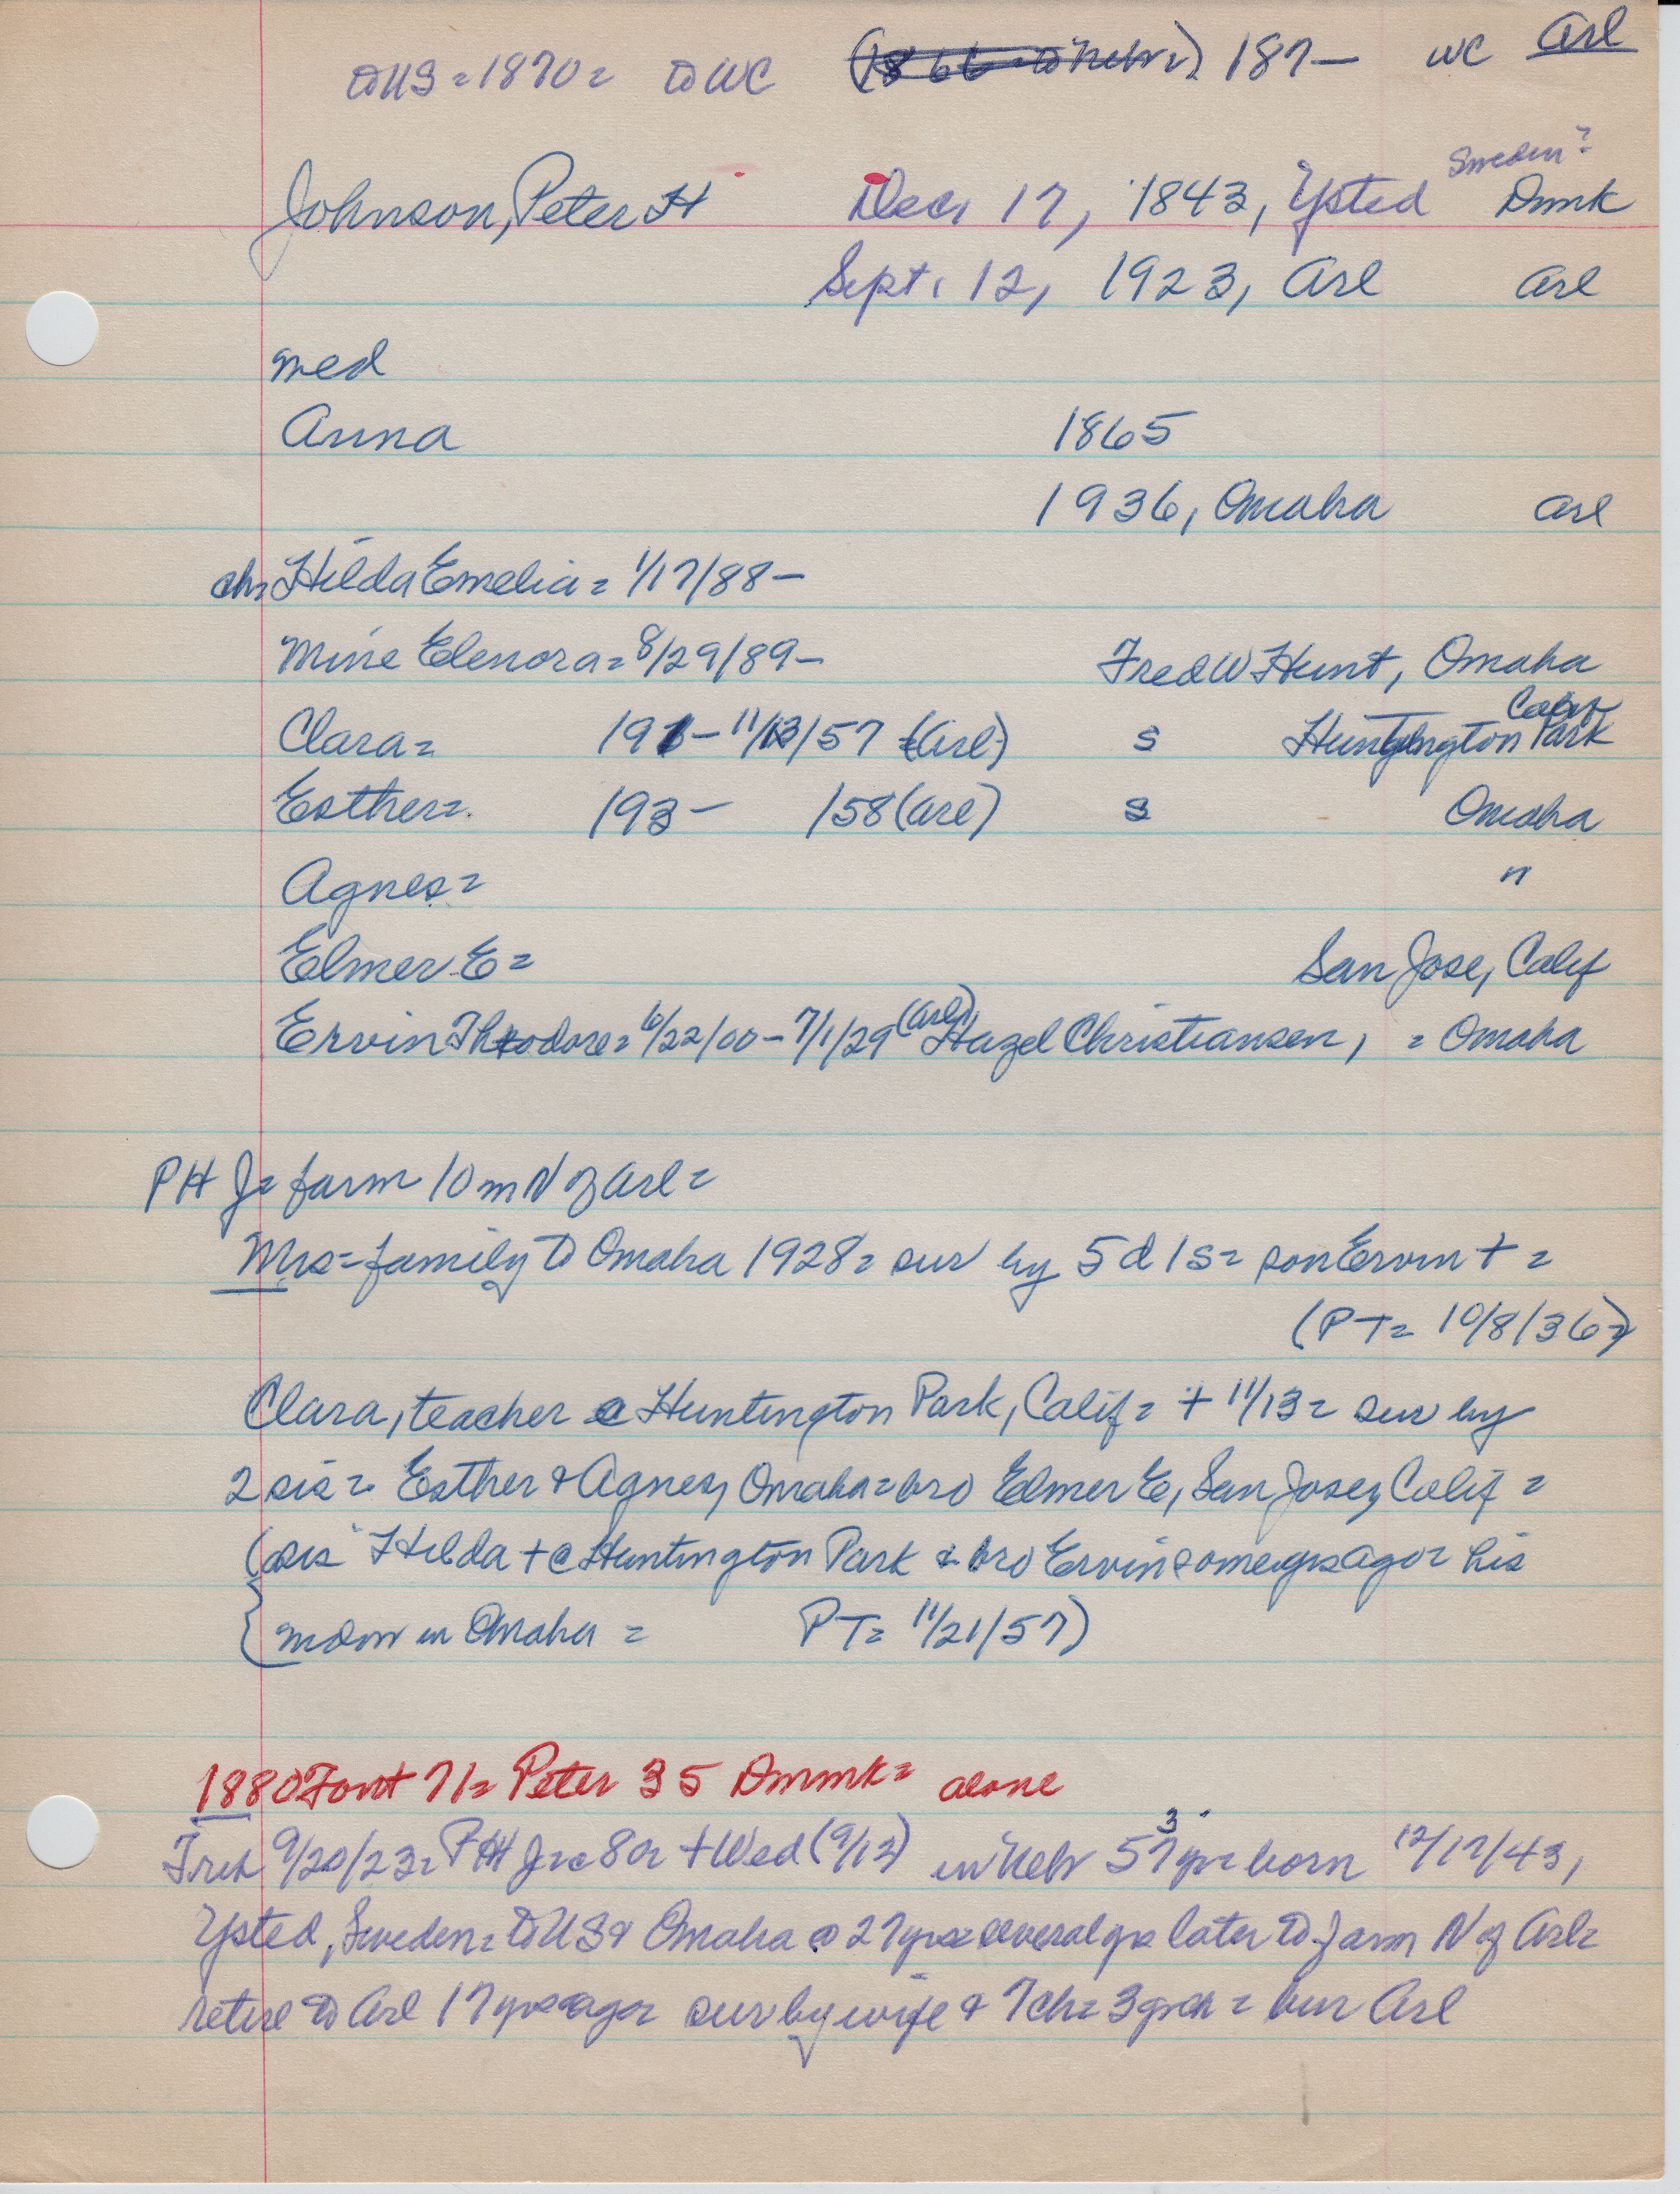 to US = 1870 = to WC (1866 - to Nebr) 187– WC Arl
Sweden?
Johnson, Peter H Dec. 17, 1843, Ysted Dnmk
Sept. 12, 1923, Arl Arl
med
Anna 1865
1936, Omaha Arl
ch= Hilda Emelia = 1/17/88 –
Mine Elenora = 8/29/89 – Fred W Hunt, Omaha
Calif
Clara = 191– 11/13/57 (Arl) s Huntington Park
Esther = 193 – /58 (Arl) s Omaha
Agnes = "
Elmer E = San Jose, Calif
Ervin Theodore = 6/22/00 – 7/1/29 (Arl) Hazel Christiansen, = Omaha
PH J = farm 10 m N of Arl =
Mrs = family to Omaha 1928 = sur by 5 d 1 s = son Ervin + =
(PT = 10/8/36)
Clara, teacher @ Huntington Park, Calif = + 11/13 = sur by
2 sis = Esther & Agnes, Omaha = bro Elmer E, San Jose, Calif =
(sis Hilda + @ Huntington Park & bro Ervin some yrs ago = his
widow in Omaha = PT = 11/21/57)
1880 Font 71 = Peter 35 Dnmk = alone
3
9/20/23 = PH J = @ 80 = + Wed (9/12) in Nebr 57 yr = born 12/17/43,
Ysted, Sweden = to US & Omaha @ 27 yrs = several yrs later to farm N of Arl =
retire to Arl 17 yrs ago = sur by wife & 7 ch = 3 grch = bur Arl